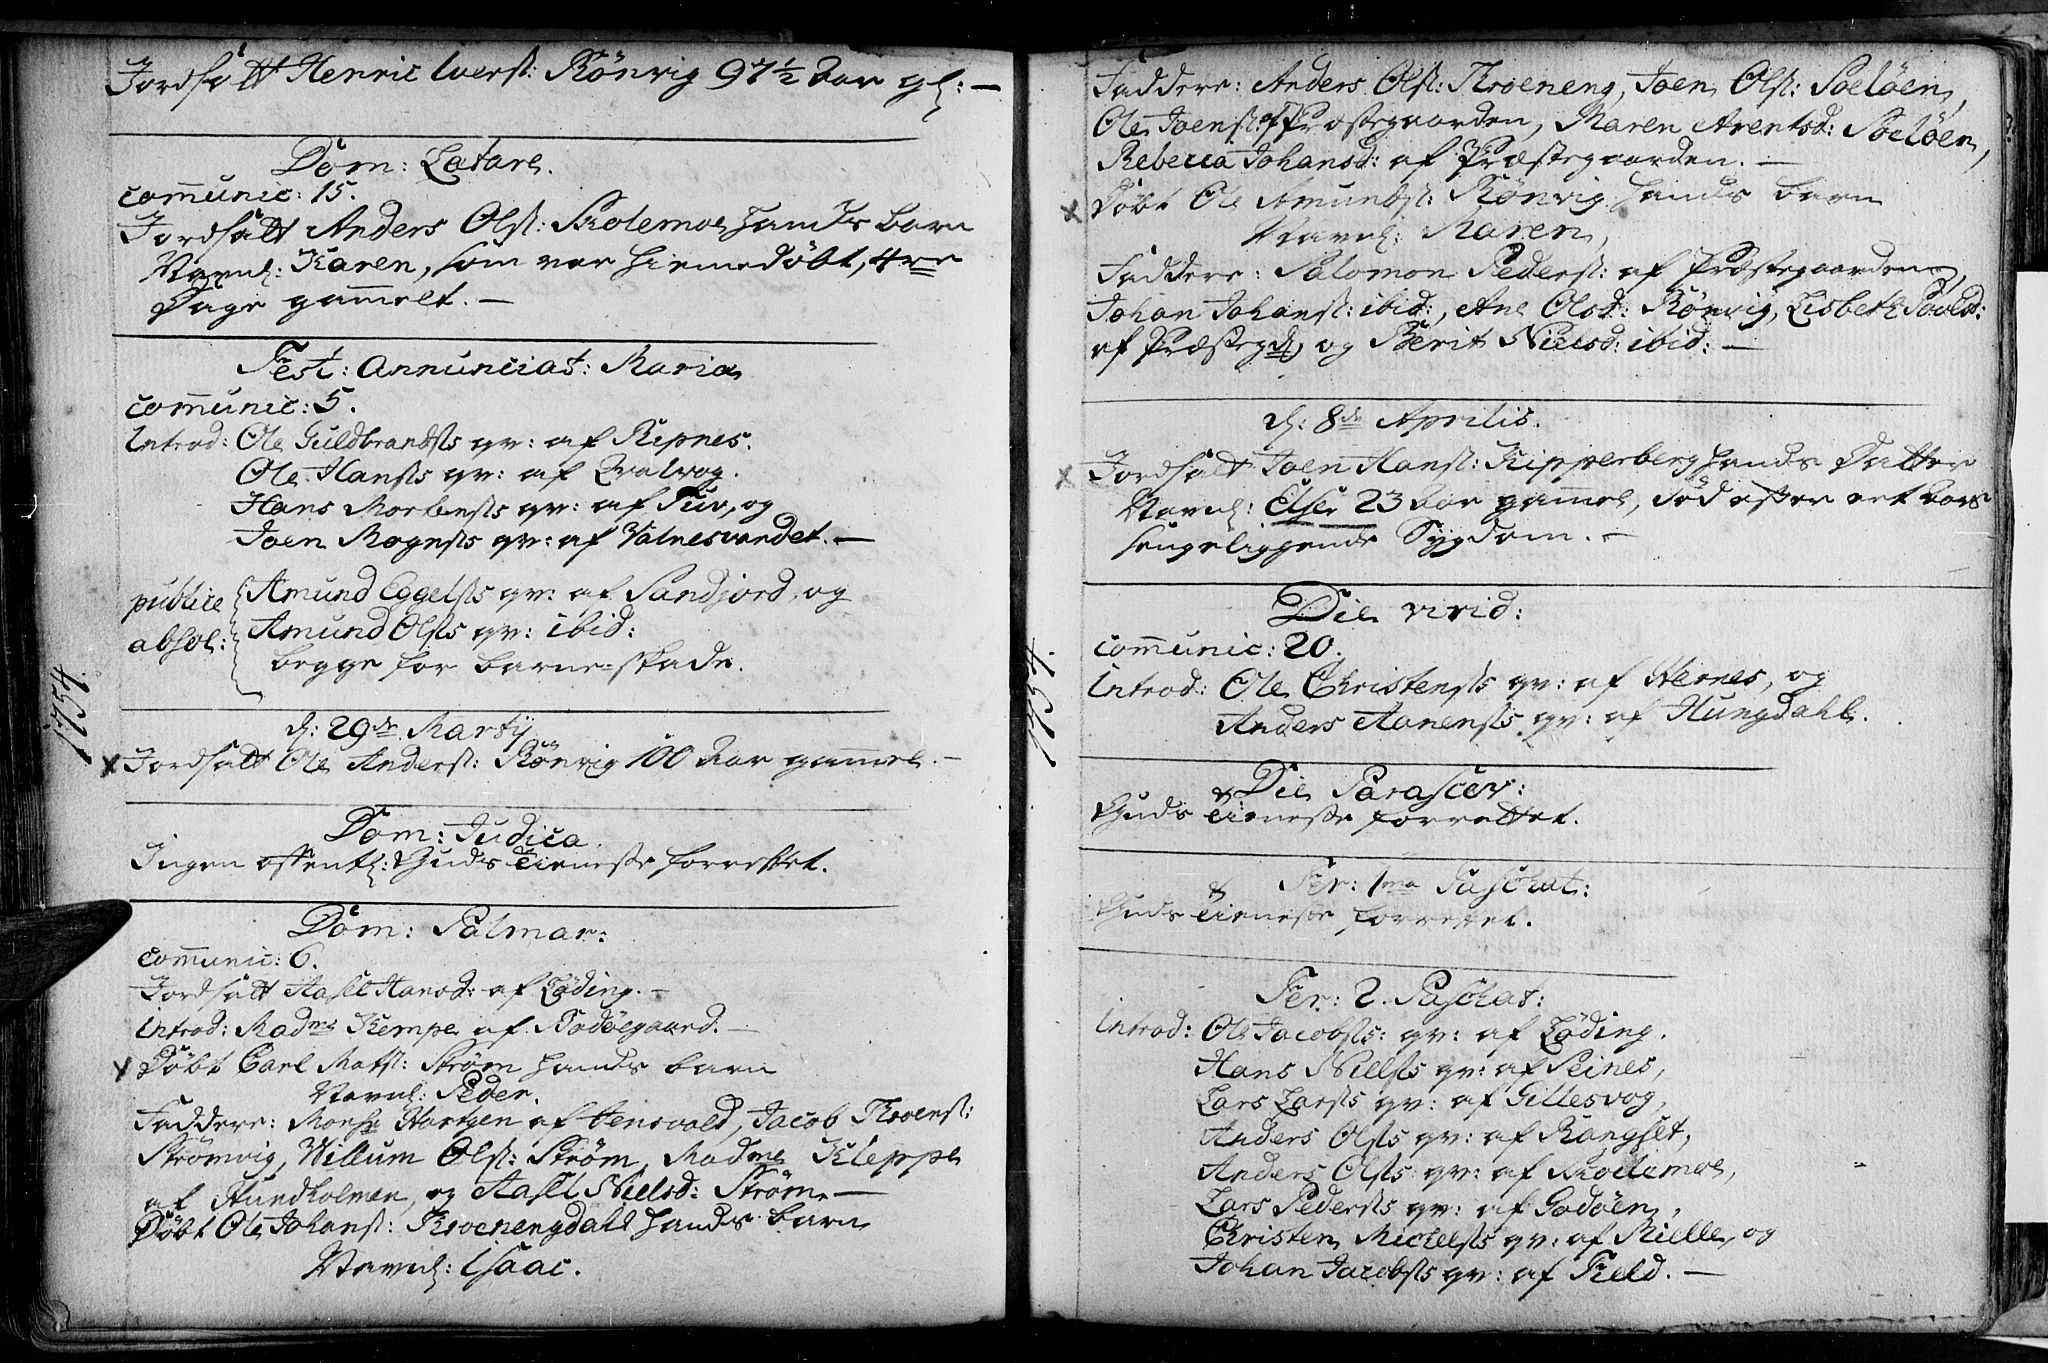 Jordfatt Henric Iverst: Rönvig 97½ Aar gl: —
Dom: Lætare.
com̅unic: 15.
Jordfatt Anders Olst: Skolemoe hands barn
Navnl: Karen, som var hiemedöbt, 4re
Dage gam̅elt. —
Fest: Annunciat: Mariæ
com̅unic: 5.
Introd: Ole Guldbrandsts qv: af Ripnes.
Ole Hansts qv: af Qvalvog.
Hans Mortensts qv: af Tuv, og
Joen Mognsts qv: af Valnesvandet. —
publice absol: Amund Eggelsts qv: af Sandjord, og
Amund Olsts qv: ibid:
begge for barne-skade.
1754.
d: 29de Martij
x Jordfatt Ole Anderst: Rönvig 100 Aar gam̅el. —
Dom: Judica.
Ingen offentl: Guds tieneste forrettet.
Dom: Palmar:
com̅unic: 6.
Jordfatt Aasel Hansd: af Löding. —
Introd: Madme Kempe af Bodöegaard. —
x Döbt Carl Matst: Ström hands barn
Navnl: Peder.
Faddere: Monsr Hartgen af Jensvold, Jacob Thoerst:
Strömvig, Willum Olst: Ström, Madme Kleppe
af Hundholmen, og Aasel Nielsd: Ström. —
Döbt Ole Johanst: Thoenengdahl hands barn
Navnl: Isaac.
Faddere: Anders Olst: Thoeneng, Joen Olst: Soelöen,
Ole Joenst: af Præstegaarden, Maren Arentsd: Soelöen,
Rebecca Johansd: af Præstegaarden. —
x Döbt Ole Amundst: Rönvig hands barn
Navnl: Maren,
Faddere: Salomon Pederst: af Præstegaarden,
Johan Johanst: ibid:, Ane Olsd: Rönvig, Lisbeth Povelsd:
af Præstegd, og Berit Nielsd: ibid: —
d: 8de Aprilis.
x Jordfatt Joen Hanst: Kipperberg hands Datter
Navnl: Else 23 Aar gam̅el, död efter et Aars
sengeliggende Sygdom. —
1754.
Die virid:
com̅unic: 20.
Introd: Ole Christensts qv: af Hernes, og
Anders Aanensts qv: af Hungdahl.
Die Parascev:
Guds tieneste forrettet.
Fer: 1ma Paschat:
Guds tieneste forrettet.
Fer: 2. Paschat:
Introd: Ole Jacobsts: qv: af Löding.
Hans Nielsts qv: af Seines,
Lars Larsts qv: af Gillesvog,
Anders Olsts qv: af Rangset,
Anders Olsts qv: af Skolemoe,
Lars Pedersts qv: af Godöen,
Christen Michelsts qv: af Mielle, og
Johan Jacobsts qv: af Field. —